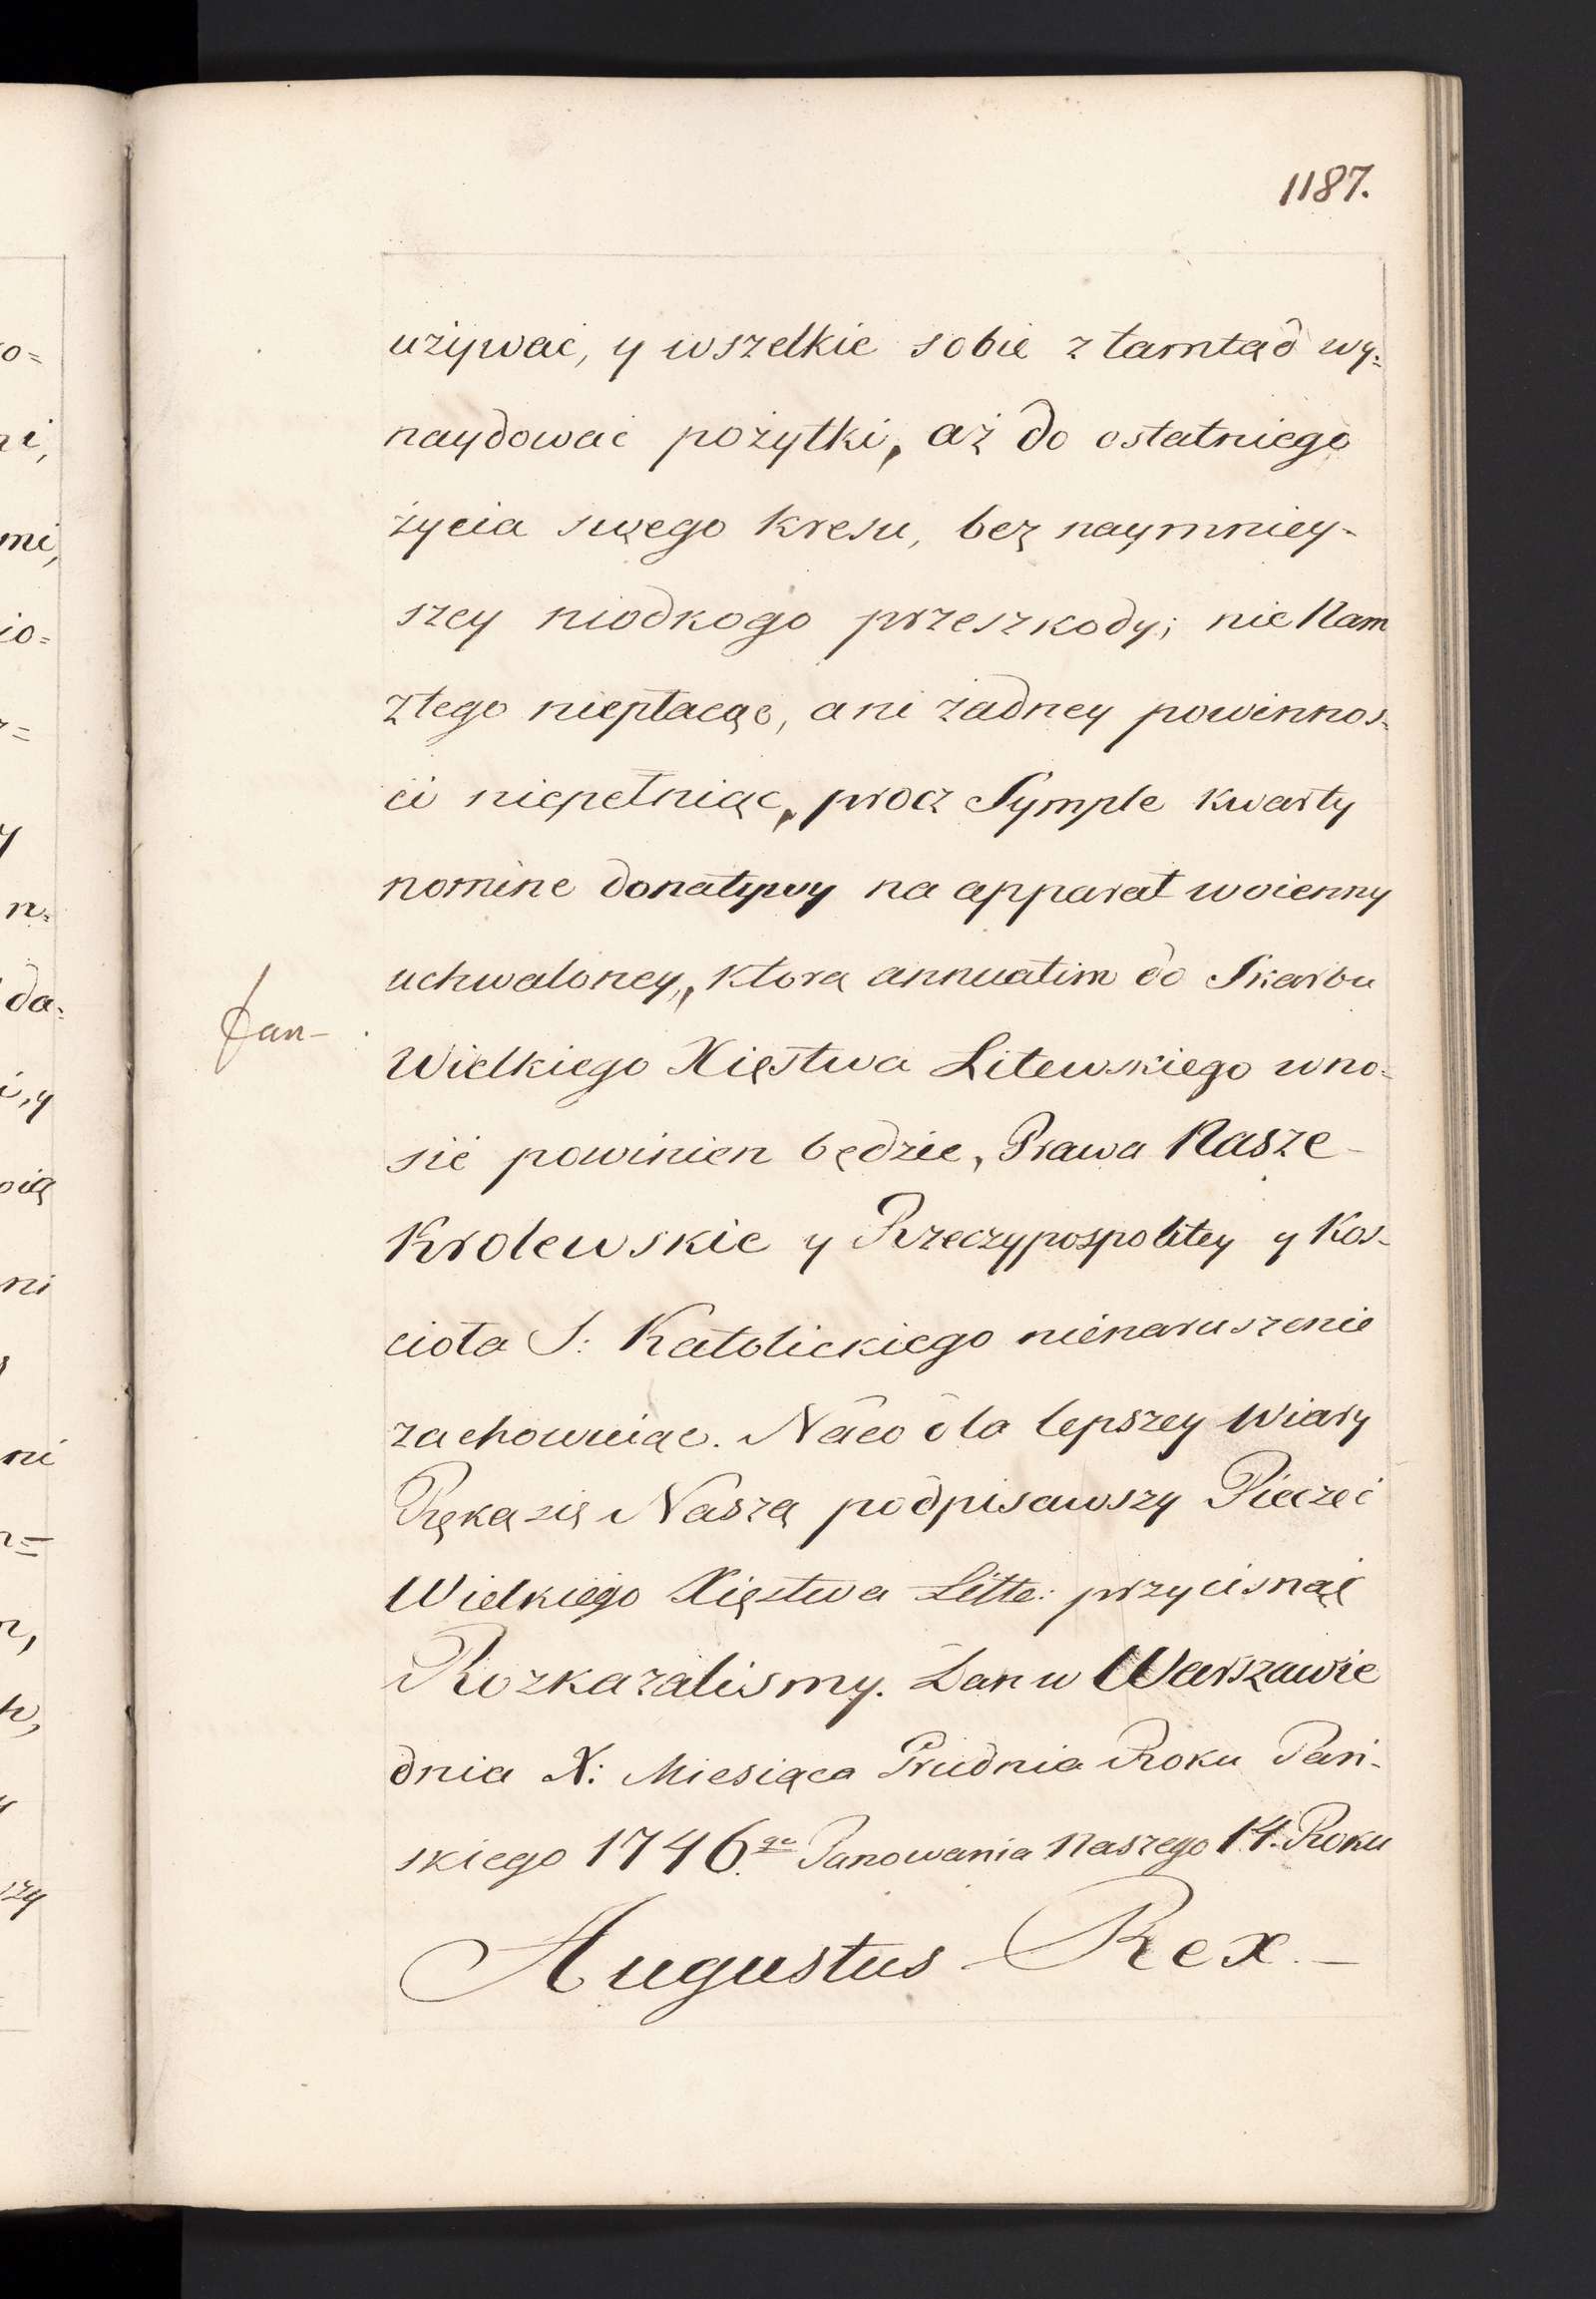 1187.
używać, y wszelkie sobie z tamtąd wy=
naydować pożytki, aż do ostatniego
życia swego kresu, bez naymniey-
szey niodkogo przeszkody; nie Nam
ztego niepłacąc, ani żadney powinnos=
ci niepełniąc, procz Symple kwarty
nomine donatywy na apparat woienny
uchwaloney, ktorą annuatim do Skarbu
Wielkiego Xięstwa Litewskiego wno=
sić powinien będzie, Prawa Nasze
Krolewskie y Rzeczypospolitey y Kos=
cioła S: Katolickiego nienaruszenie
zachowuiąc. Naco dla lepszey Wiary
Ręką się Naszą podpisawszy Pieczęć
Wielkiego Xięstwa Litte: przycisnąć
Rozkazalismy. Dan w Warszawie
dnia X: Miesiąca Grudnia Roku Pań-
skiego 1746.go Panowania Naszego 14. Roku
Augustus Rex.